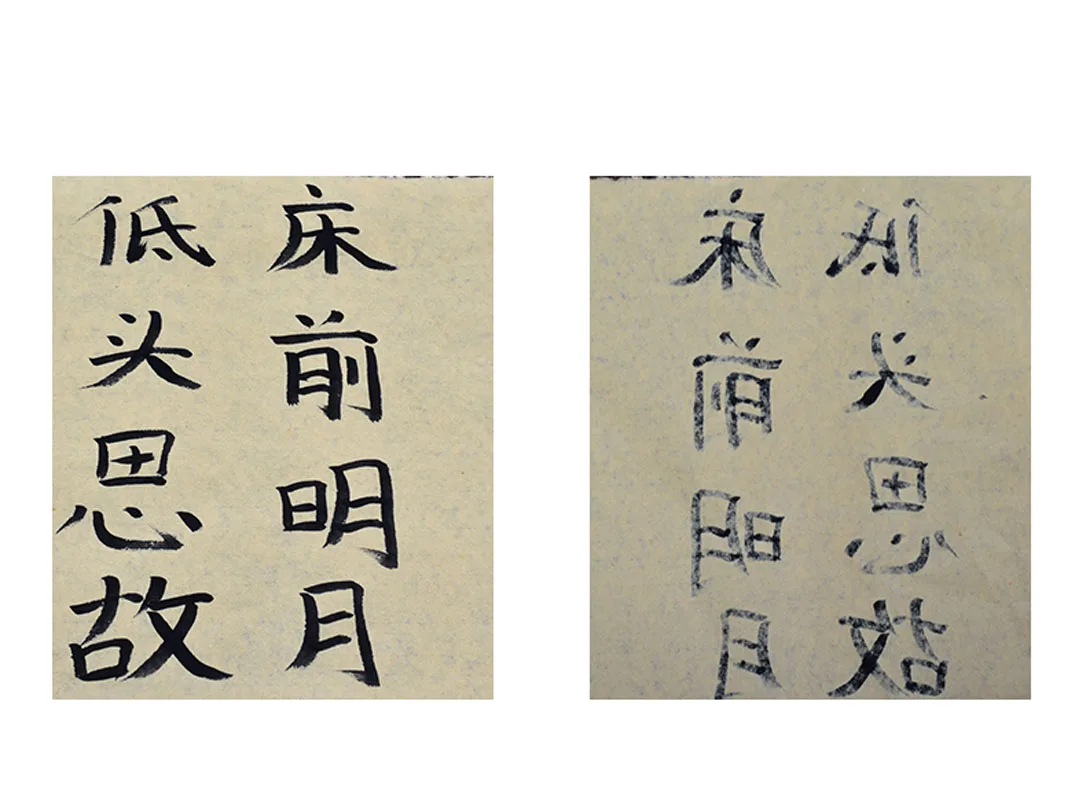 床前明月
低头思故
床前明月
低头思故